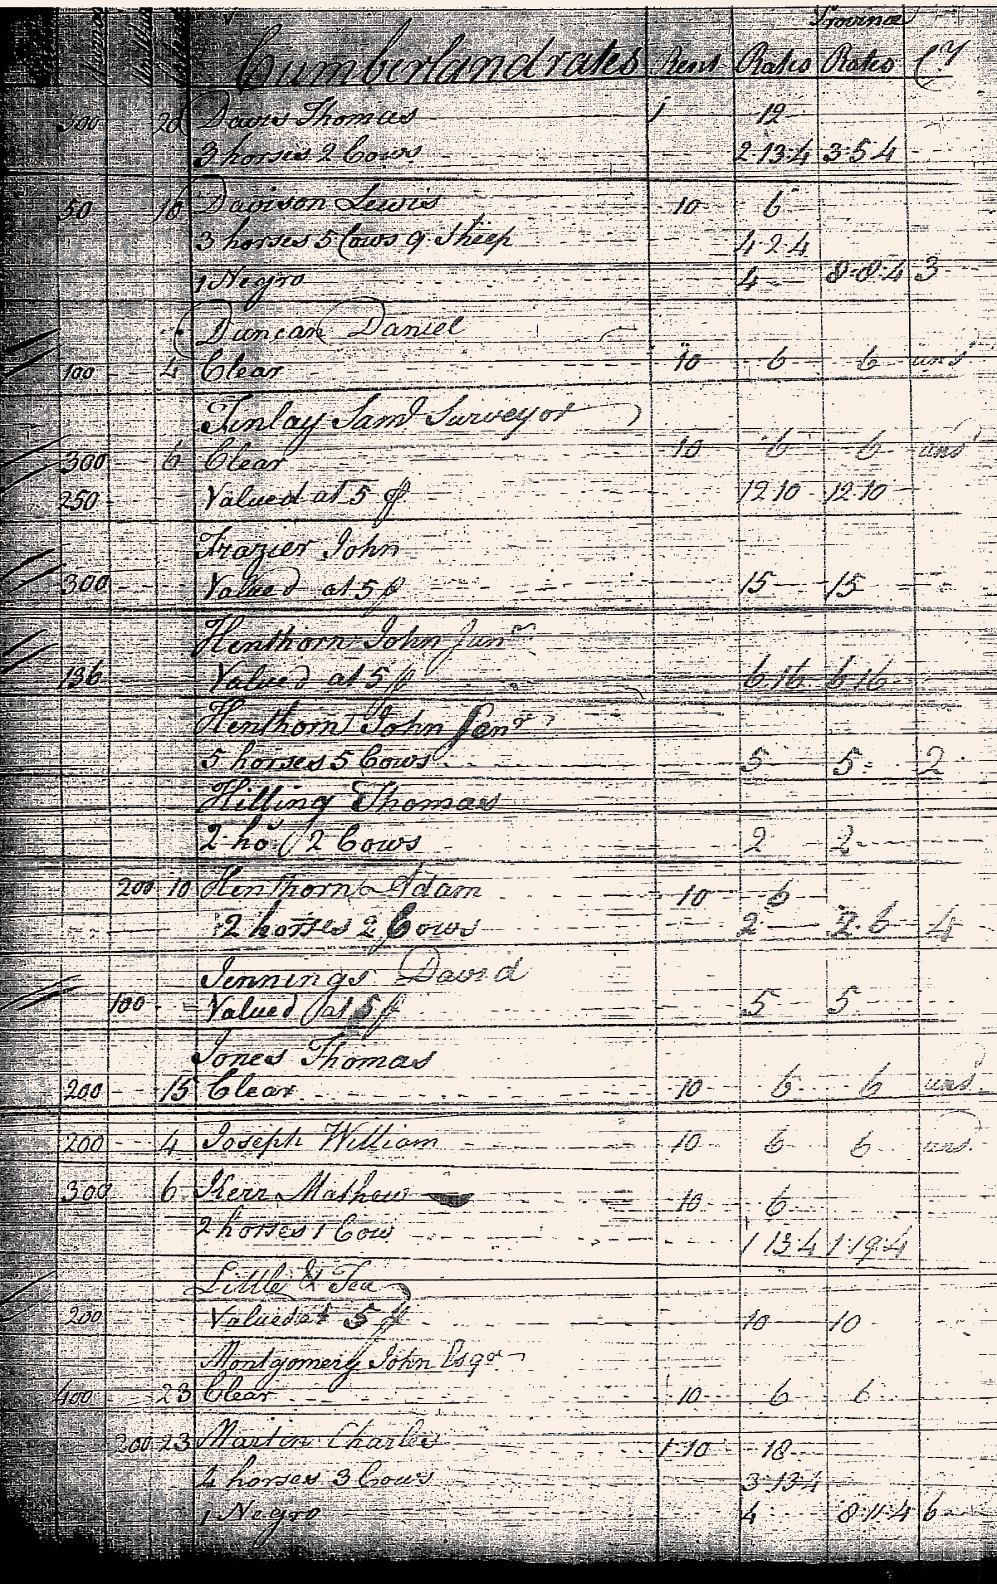 Province
Cumberland rates Rent Rates Rates Cy
300 20 Davis Thomas 1 12
3 horses 2 Cows 2·13·4 3·5·4
50 16 Davison Lewis 10 6
3 horses 5 Cows 9 Sheep 4·2·4
1 Negro 4 8·8·4 3
Duncan Daniel
100 4 Clear 10 6 6 uns
Finlay Saml Surveyor
300 6 Clear 10 6 6 uns
250 Valued at 5 p 12·10 12·10
Frazier John
300 Valued at 5 p 15 15
Henthorn John Junr
136 Valued at 5 p 6·16 6·16
Henthorn John Senr
5 horses 5 Cows 5 5 2
Hilling Thomas
2 ho 2 Cows 2 2
200 10 Henthorn Adam 10 6
2 horses 2 Cows 2 2·6 4
Jennings David
100 Valued at 5 p 5 5
Jones Thomas
200 15 Clear 10 6 6 uns
200 4 Joseph William 10 6 6 uns
300 6 Kerr Mathew 10 6
2 horses 1 Cow 1·13·4 1·19·4
Little & Tea
200 Valued at 5 p 10 10
Montgomery John Esqr
400 23 Clear 10 6 6
200 23 Martin Charles 1·10 18
4 horses 3 Cows 3·13·4
1 Negro 4 8·11·4 6